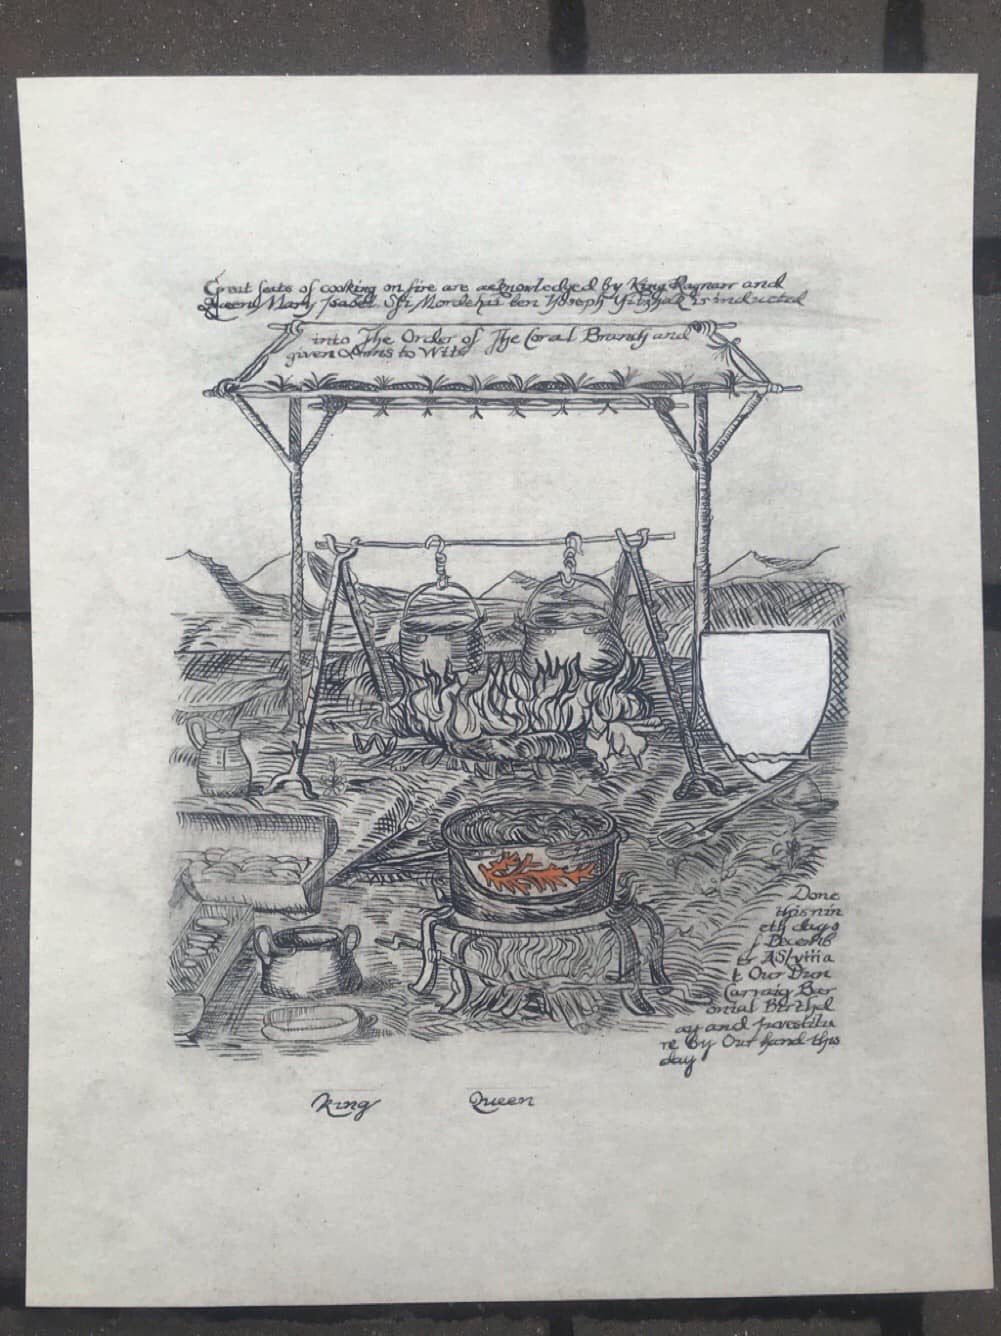 Great feats of cooking on fire are acknowledged by King Ragnarr and
Queen Mary Isabel. Sft Mordehai ben Yoseph Yitzhak is inducted
into The Order of The Coral Branch and
given Arms to Witt
Done
this nin
eth day o
f Decemb
er AS lviii a
t Our Dun
Carraig Bar
onial Birthd
ay and Investitu
re By Our hand this
day
King Queen